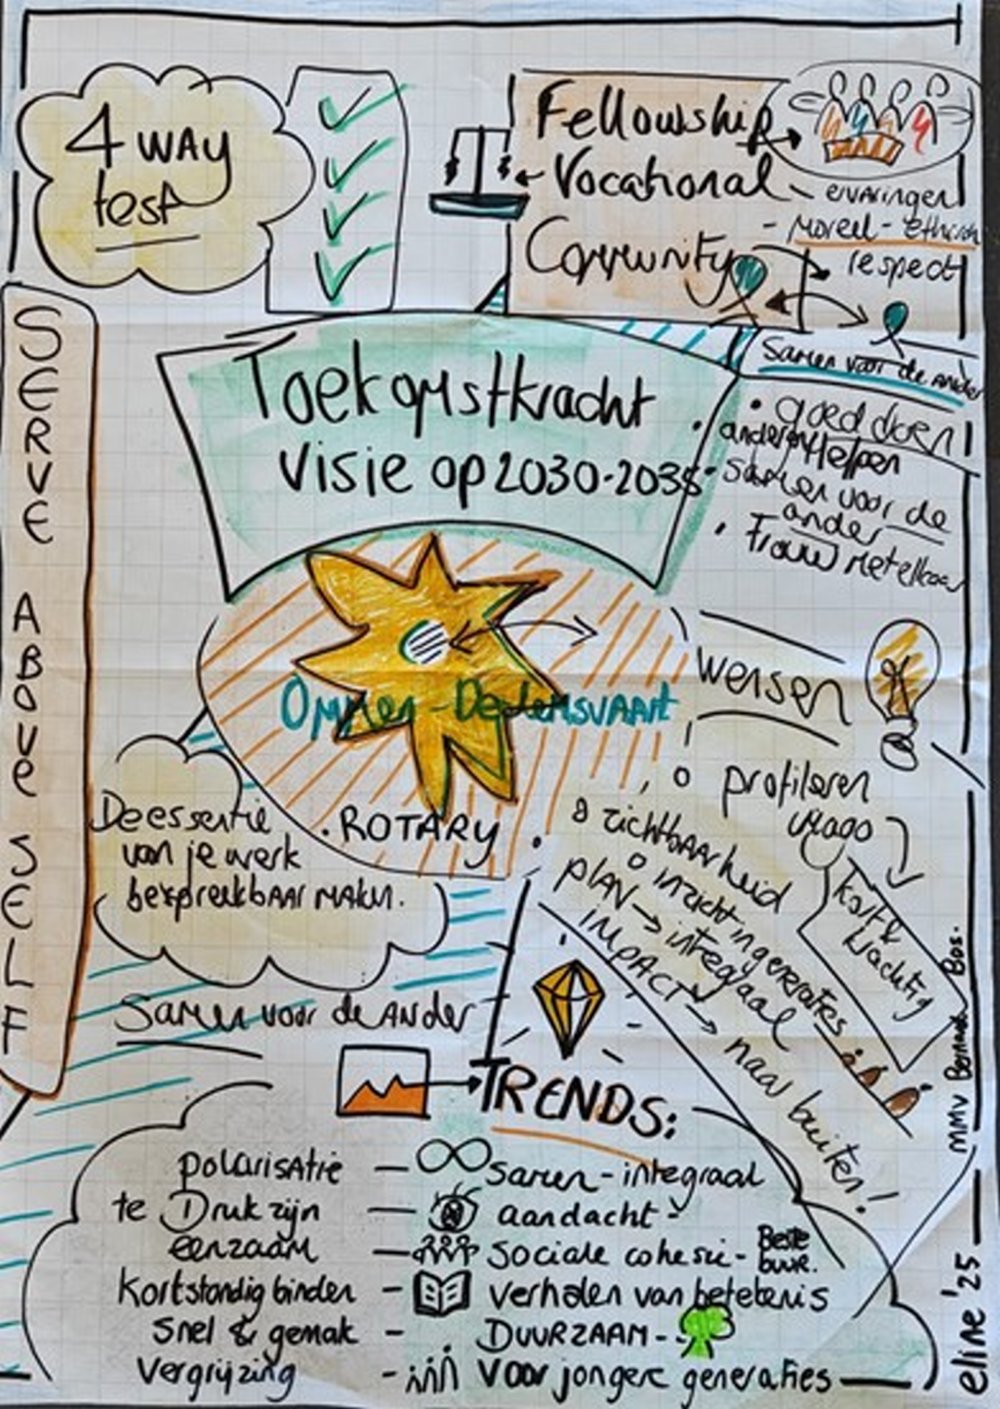 4 WAY
test
Fellowship
Vocational
Community
ervaringen
- Moreel - ethisch
respect
Samen voor de ander
SERVE ABOVE SELF
Toekomstkracht
Visie op 2030-2035
• goed doen
• anderen helpen
• samen voor de
ander
• Trouw
Ommen-Dedemsvaart
• ROTARY •
wensen
o profileren
vraag
o zichtbaarheid
o inzicht in generaties
PLAN → integraal
IMPACT → naar buiten!
kort &
krachtig
De essentie
van je werk
bespreekbaar maken.
Samen voor de ANDER
TRENDS:
polarisatie – samen-integraal
te Druk zijn – aandacht
eenzaam – sociale cohesie - Beste
buur.
kortstondig binden – verhalen van betekenis
snel & gemak – DUURZAAM -
Vergrijzing – voor jongere generaties
MMV Bernard Bos.
eline '25